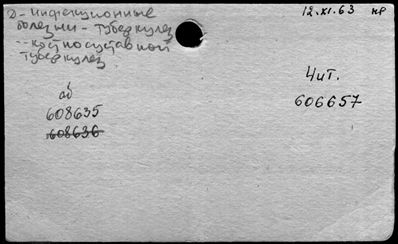 2 - инфекционные
болезни - туберкулез
-"- костносуставной
туберкулез
12.XI.63 нр
Чит.
606657
аб
608635
608636